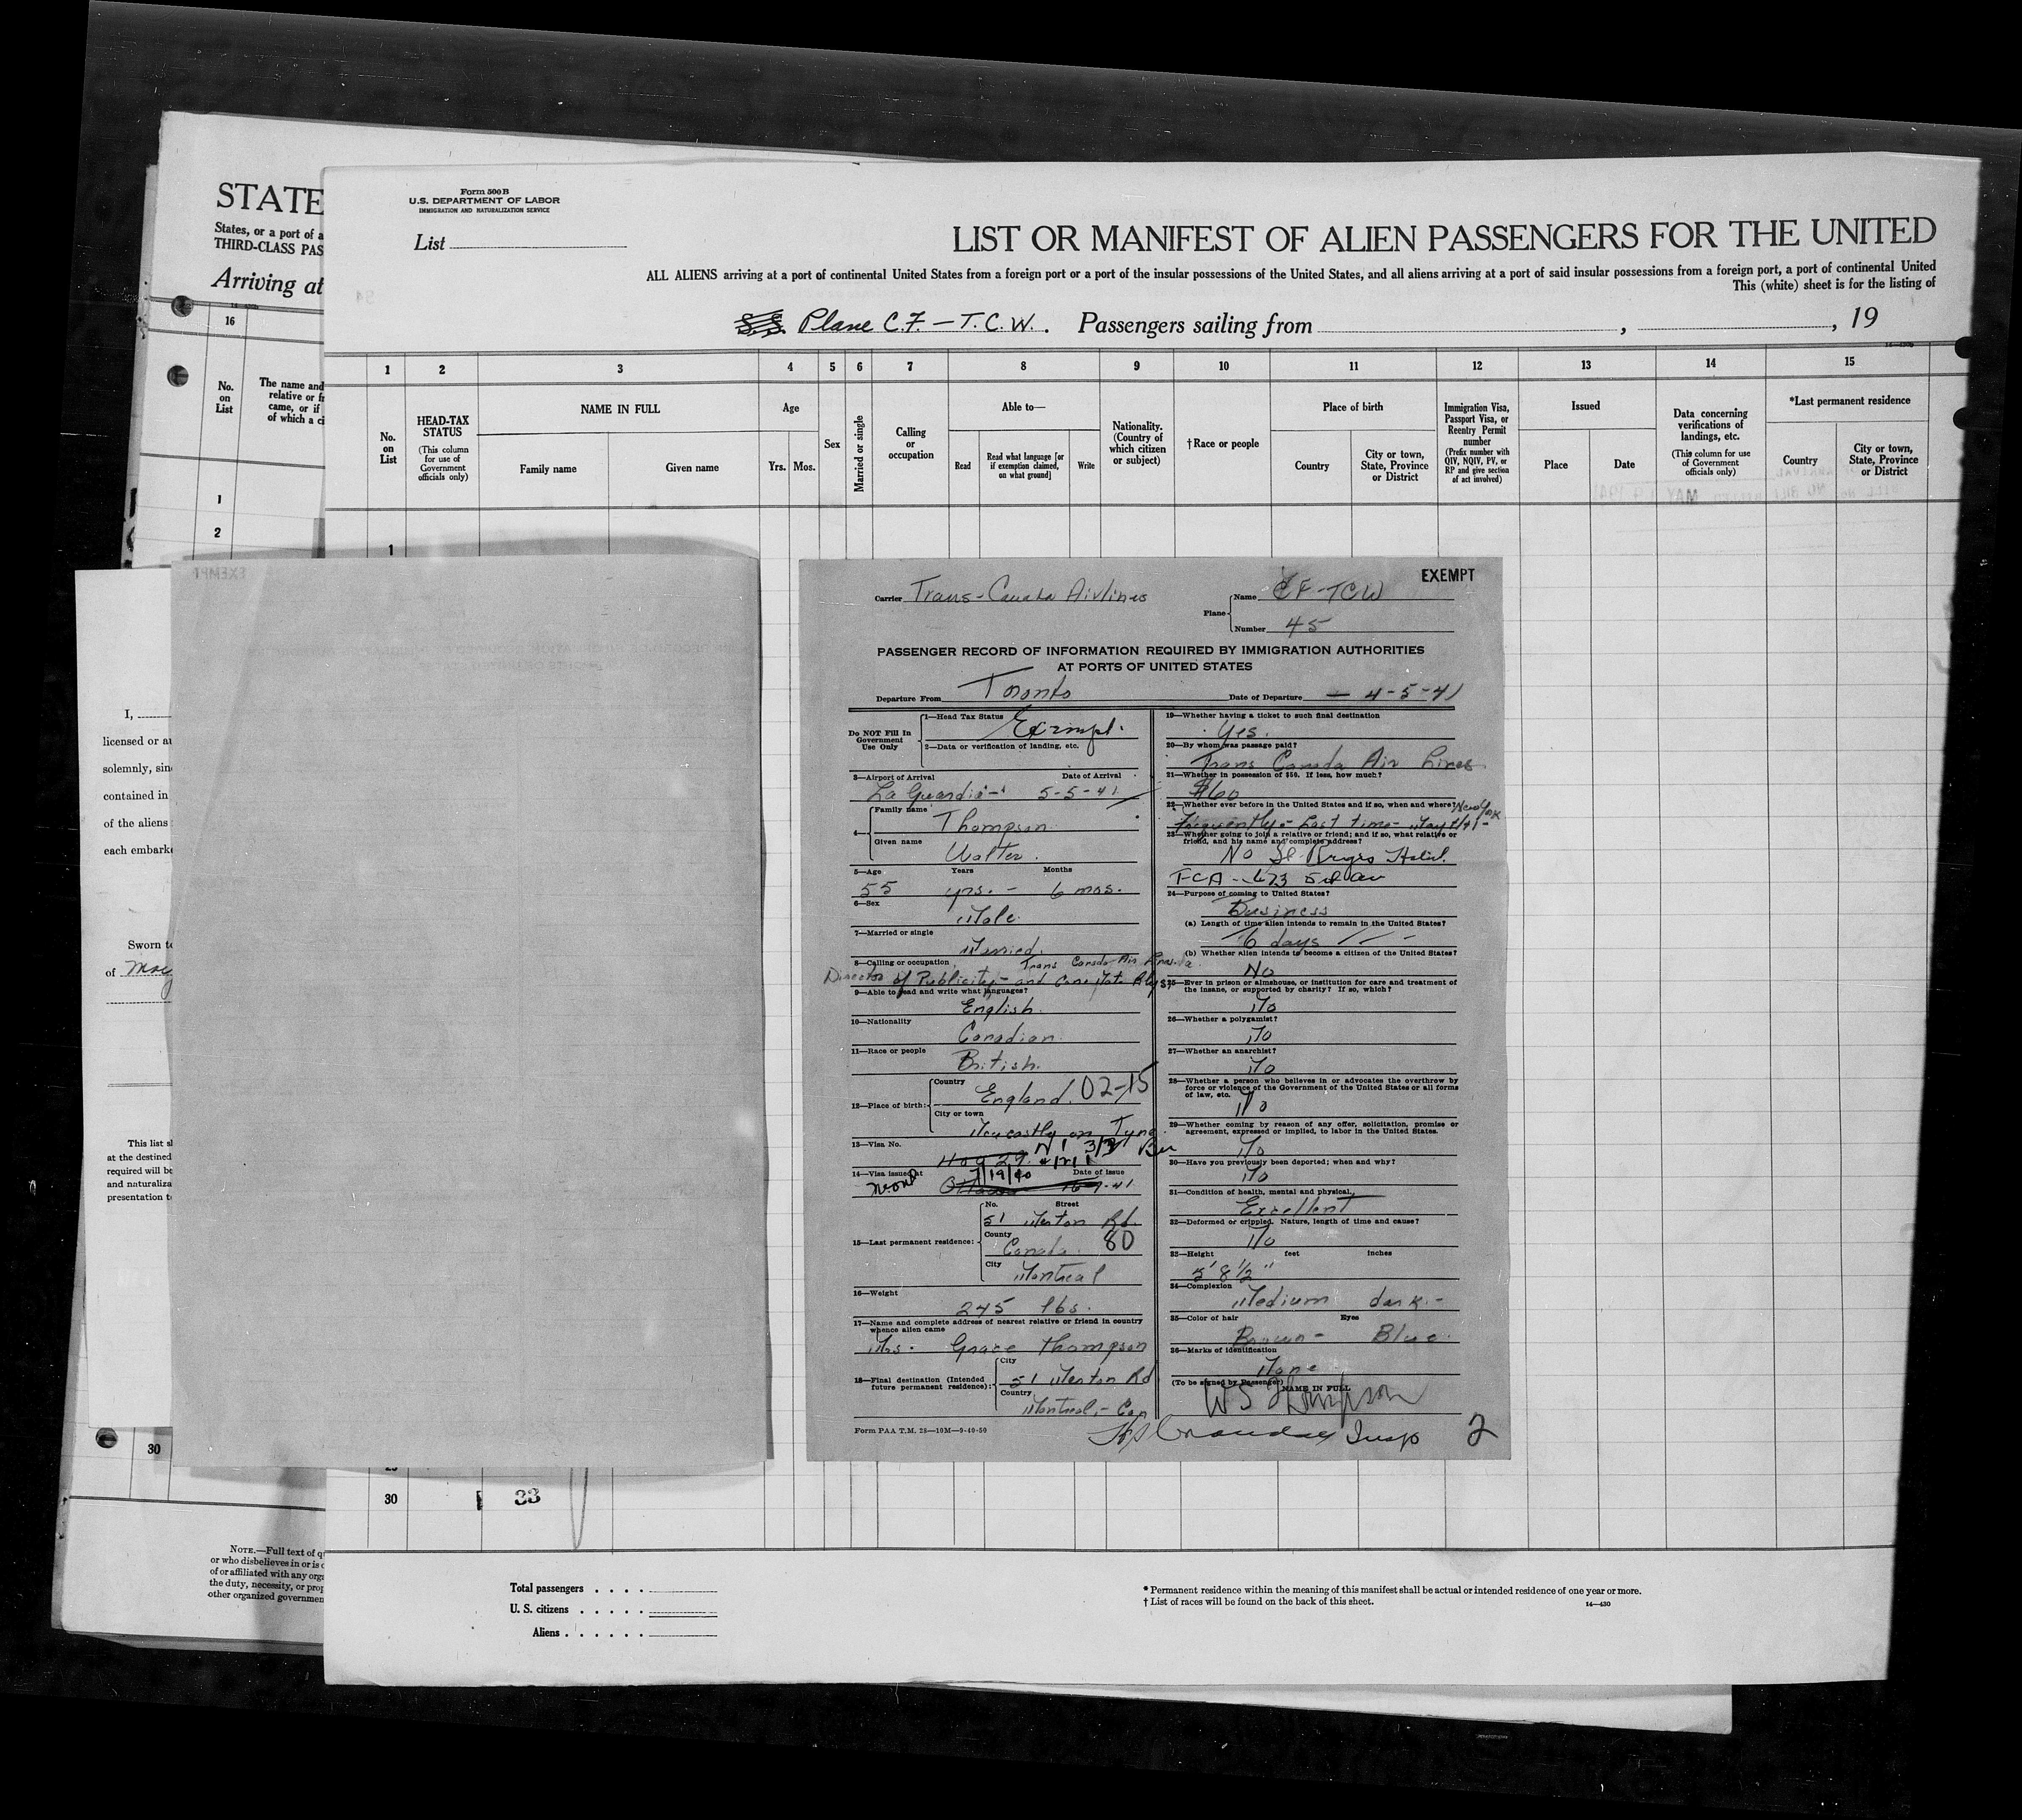 STATE
States, or a port of a
THIRD-CLASS PAS
Arriving at
16
No.
on
List
The name and
relative or fr
came, or if
of which a ci
1
2
Form 500 B
U.S. DEPARTMENT OF LABOR
IMMIGRATION AND NATURALIZATION SERVICE
List
LIST OR MANIFEST OF ALIEN PASSENGERS FOR THE UNITED
ALL ALIENS arriving at a port of continental United States from a foreign port or a port of the insular possessions of the United States, and all aliens arriving at a port of said insular possessions from a foreign port, a port of continental United
This (white) sheet is for the listing of
S.S. Plane C.F. - T.C.W. Passengers sailing from , , 19
1 2 3 4 5 6 7 8 9 10 11 12 13 14 15
No.
on
List
HEAD-TAX
STATUS
(This column
for use of
Government
officials only)
NAME IN FULL
Family name Given name
Age
Yrs. Mos.
Sex
Married or single
Calling
or
occupation
Able to—
Read
Read what language [or
if exemption claimed,
on what ground]
Write
Nationality.
(Country of
which citizen
or subject)
† Race or people
Place of birth
Country
City or town,
State, Province
or District
Immigration Visa,
Passport Visa, or
Reentry Permit
number
(Prefix number with
QIV, NQIV, PV, or
RP and give section
of act involved)
Issued
Place Date
Data concerning
verifications of
landings, etc.
(This column for use
of Government
officials only)
*Last permanent residence
Country
City or town,
State, Province
or District
1
I,
licensed or au
solemnly, sinc
contained in
of the aliens
each embarke
Sworn to
of May
This list sh
at the destined
required will be
and naturaliza
presentation t
30
NOTE.—Full text of q
or who disbelieves in or is o
of or affiliated with any orga
the duty, necessity, or prop
other organized governmen
EXEMPT
EXEMPT
Carrier Trans-Canada Airlines
Plane Name CF-TCW
Number 45
PASSENGER RECORD OF INFORMATION REQUIRED BY IMMIGRATION AUTHORITIES
AT PORTS OF UNITED STATES
Departure From Toronto Date of Departure — 4-5-41
Do NOT Fill In
Government
Use Only
1—Head Tax Status Exempt.
2—Data or verification of landing, etc.
3—Airport of Arrival Date of Arrival
La Guardia- 5-5-41
4— Family name
Thompson
Given name
Walter.
5—Age Years Months
55 yrs. - 6 mos.
6—Sex
Male
7—Married or single
Married.
8—Calling or occupation Trans Canada Air Lines
Director of Publicity - and Can. Natn. Rlys.
9—Able to read and write what languages?
English.
10—Nationality
Canadian.
11—Race or people
British.
12—Place of birth: Country
England. 02-15
City or town
Newcastle on Tyne
13—Visa No.
14—Visa issued at Date of Issue
7/19/40
Ottawa
15—Last permanent residence: No. Street
51 Merton Rd.
County
Canada. 80
City
Montreal
16—Weight
245 lbs.
17—Name and complete address of nearest relative or friend in country
whence alien came
Mrs. Grace Thompson
18—Final destination (Intended
future permanent residence):
City
51 Merton Rd
Country
Montreal, - Can
Form PAA T.M. 28—10M—9-40-50
19—Whether having a ticket to such final destination
Yes.
20—By whom was passage paid?
Trans Canada Air Lines
21—Whether in possession of $50. If less, how much?
$60
22—Whether ever before in the United States and if so, when and where? New York
Frequently - Last time - May 1/41 -
23—Whether going to join a relative or friend; and if so, what relative or
friend, and his name and complete address?
No St. Regis Hotel.
TCA - 673 5th av
24—Purpose of coming to United States?
Business
(a) Length of time alien intends to remain in the United States?
6 days
(b) Whether alien intends to become a citizen of the United States?
No
25—Ever in prison or almshouse, or institution for care and treatment of
the insane, or supported by charity? If so, which?
No
26—Whether a polygamist?
No
27—Whether an anarchist?
No
28—Whether a person who believes in or advocates the overthrow by
force or violence of the Government of the United States or all forms
of law, etc.
No
29—Whether coming by reason of any offer, solicitation, promise or
agreement, expressed or implied, to labor in the United States.
No
30—Have you previously been deported; when and why?
No
31—Condition of health, mental and physical.
Excellent
32—Deformed or crippled. Nature, length of time and cause?
No
33—Height feet inches
5' 8 1/2"
34—Complexion
Medium dark -
35—Color of hair Eyes
Brown - Blue.
36—Marks of identification
None
(To be signed by Passenger) NAME IN FULL
WS Thompson
Insp 2
30
33
Total passengers
U. S. citizens
Aliens
* Permanent residence within the meaning of this manifest shall be actual or intended residence of one year or more.
† List of races will be found on the back of this sheet.
14—430